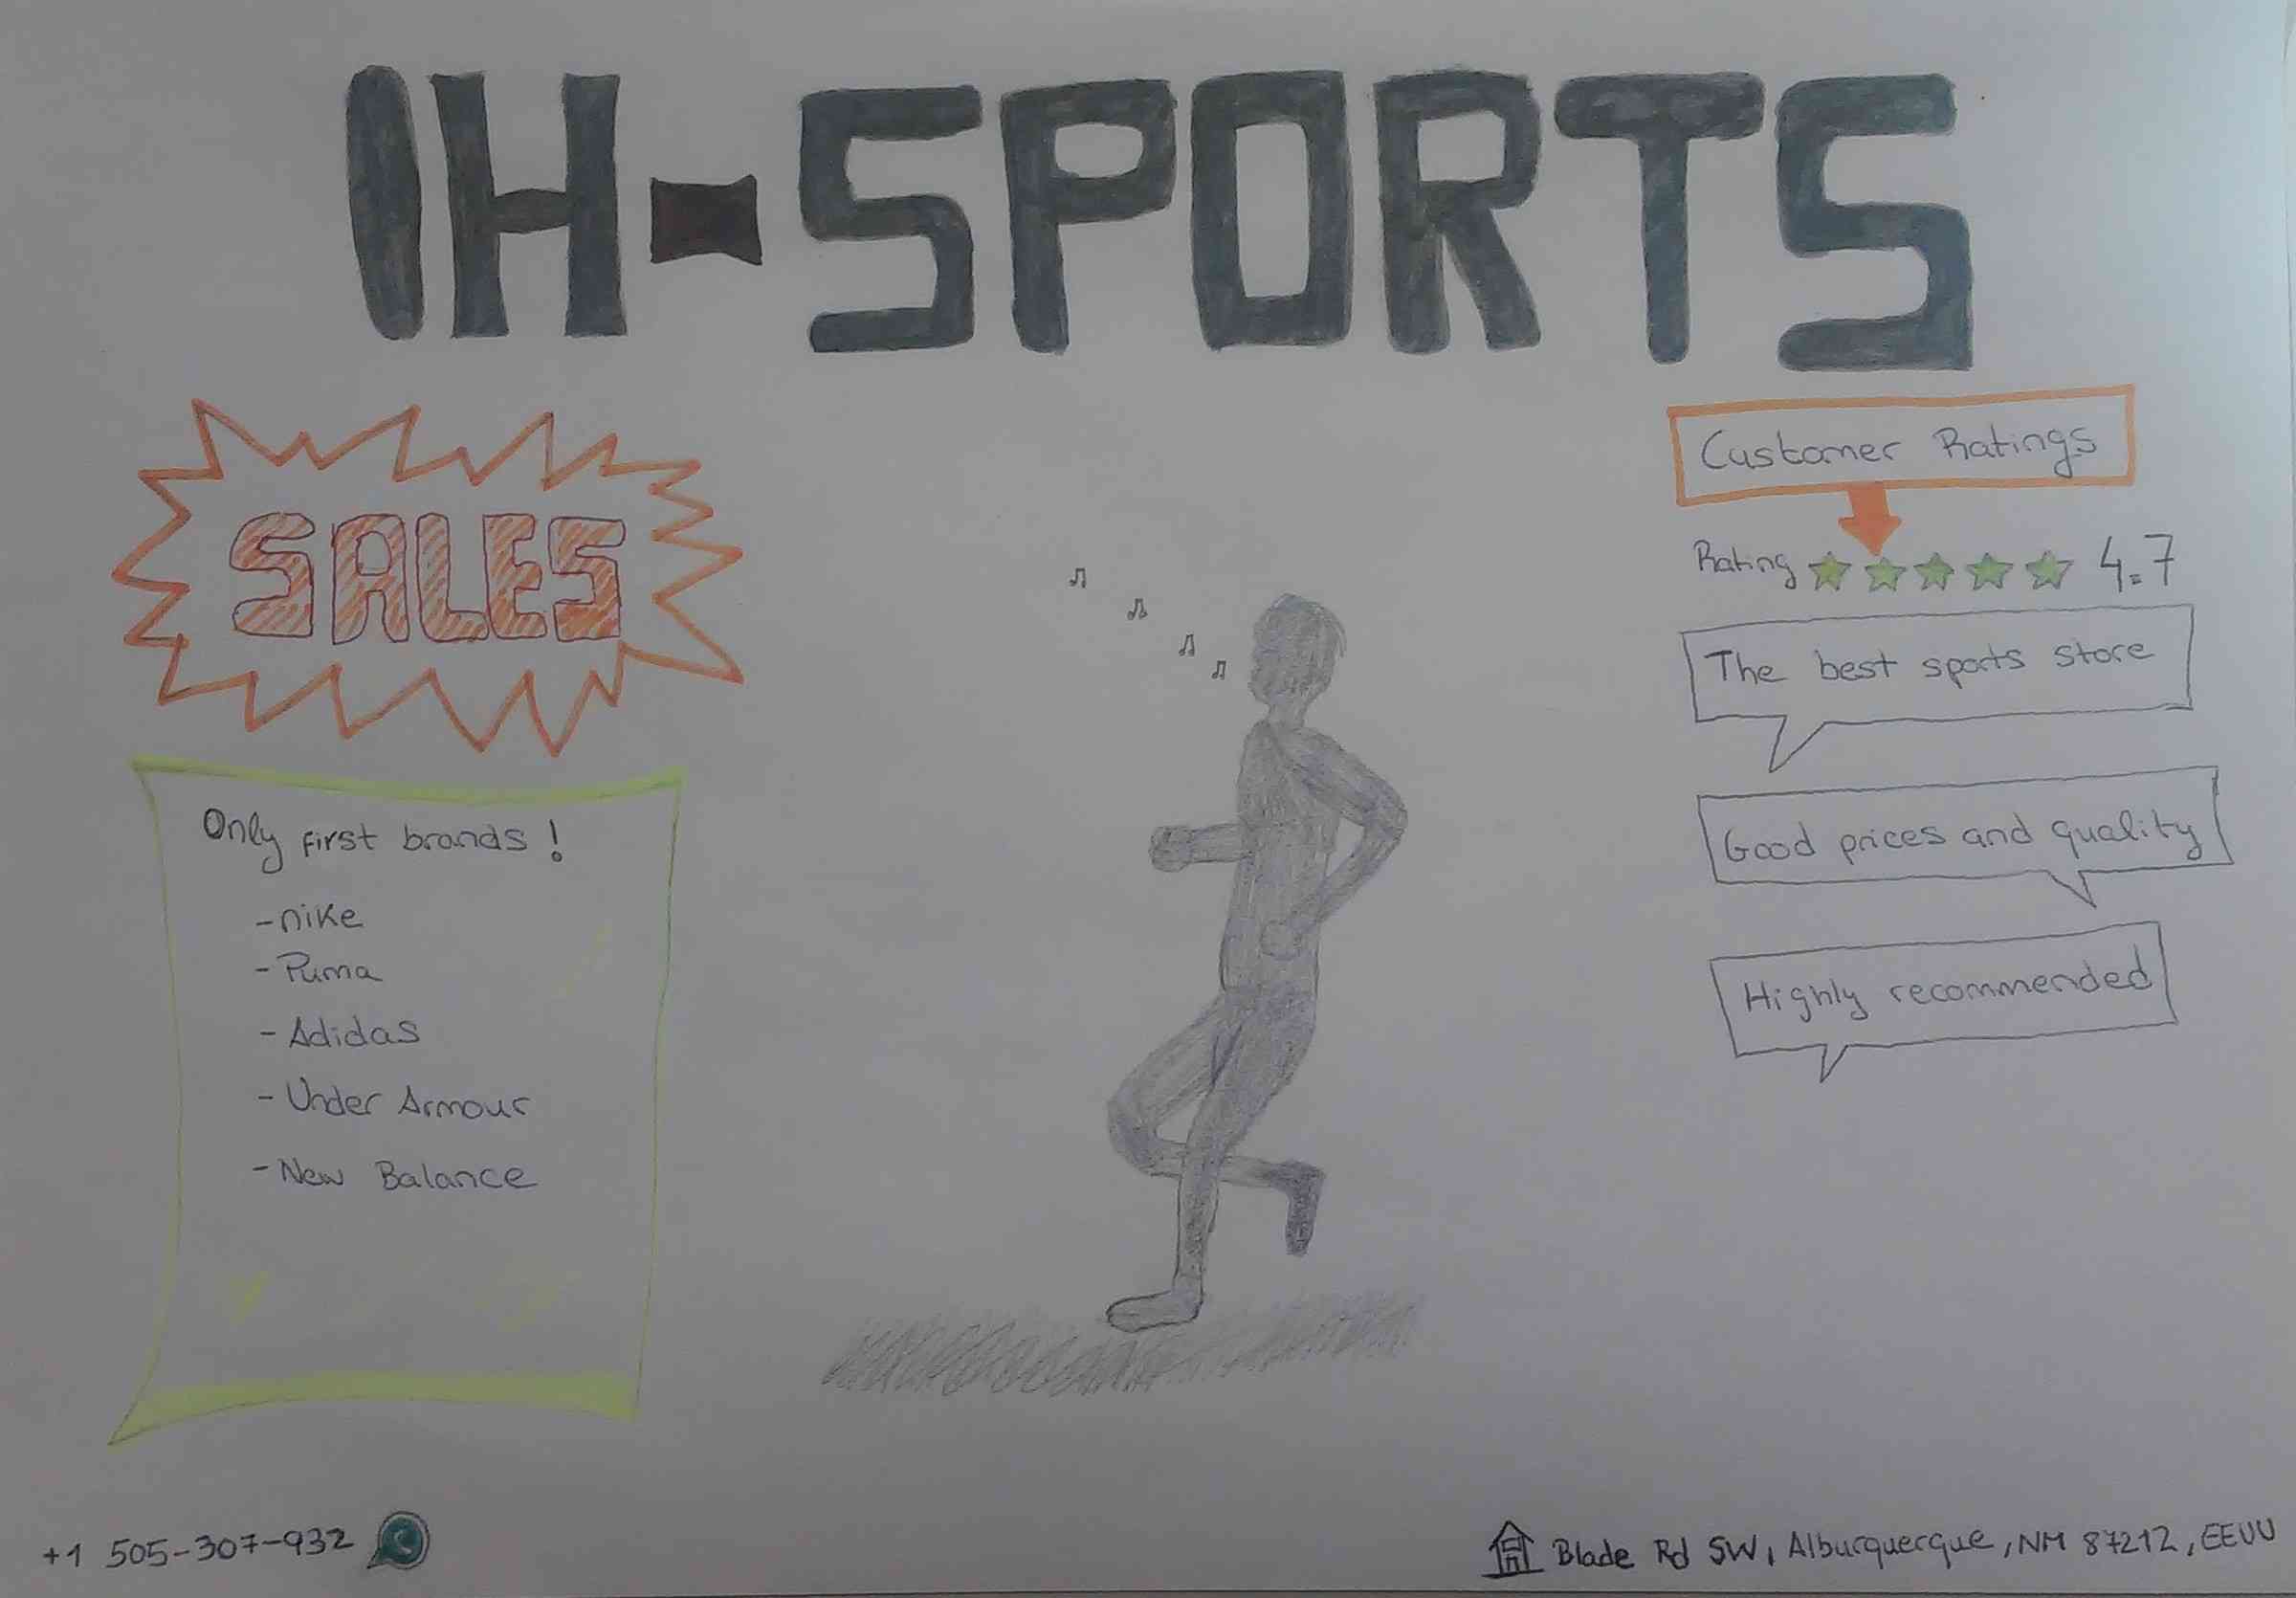 IH-SPORTS
SALES
Only first brands!
-nike
-Puma
-Adidas
-Under Armour
-New Balance
Customer Ratings
Rating 4.7
The best sports store
Good prices and quality
Highly recommended
+1 505-307-932
Blade Rd SW, Alburquerque, NM 87212, EEUU